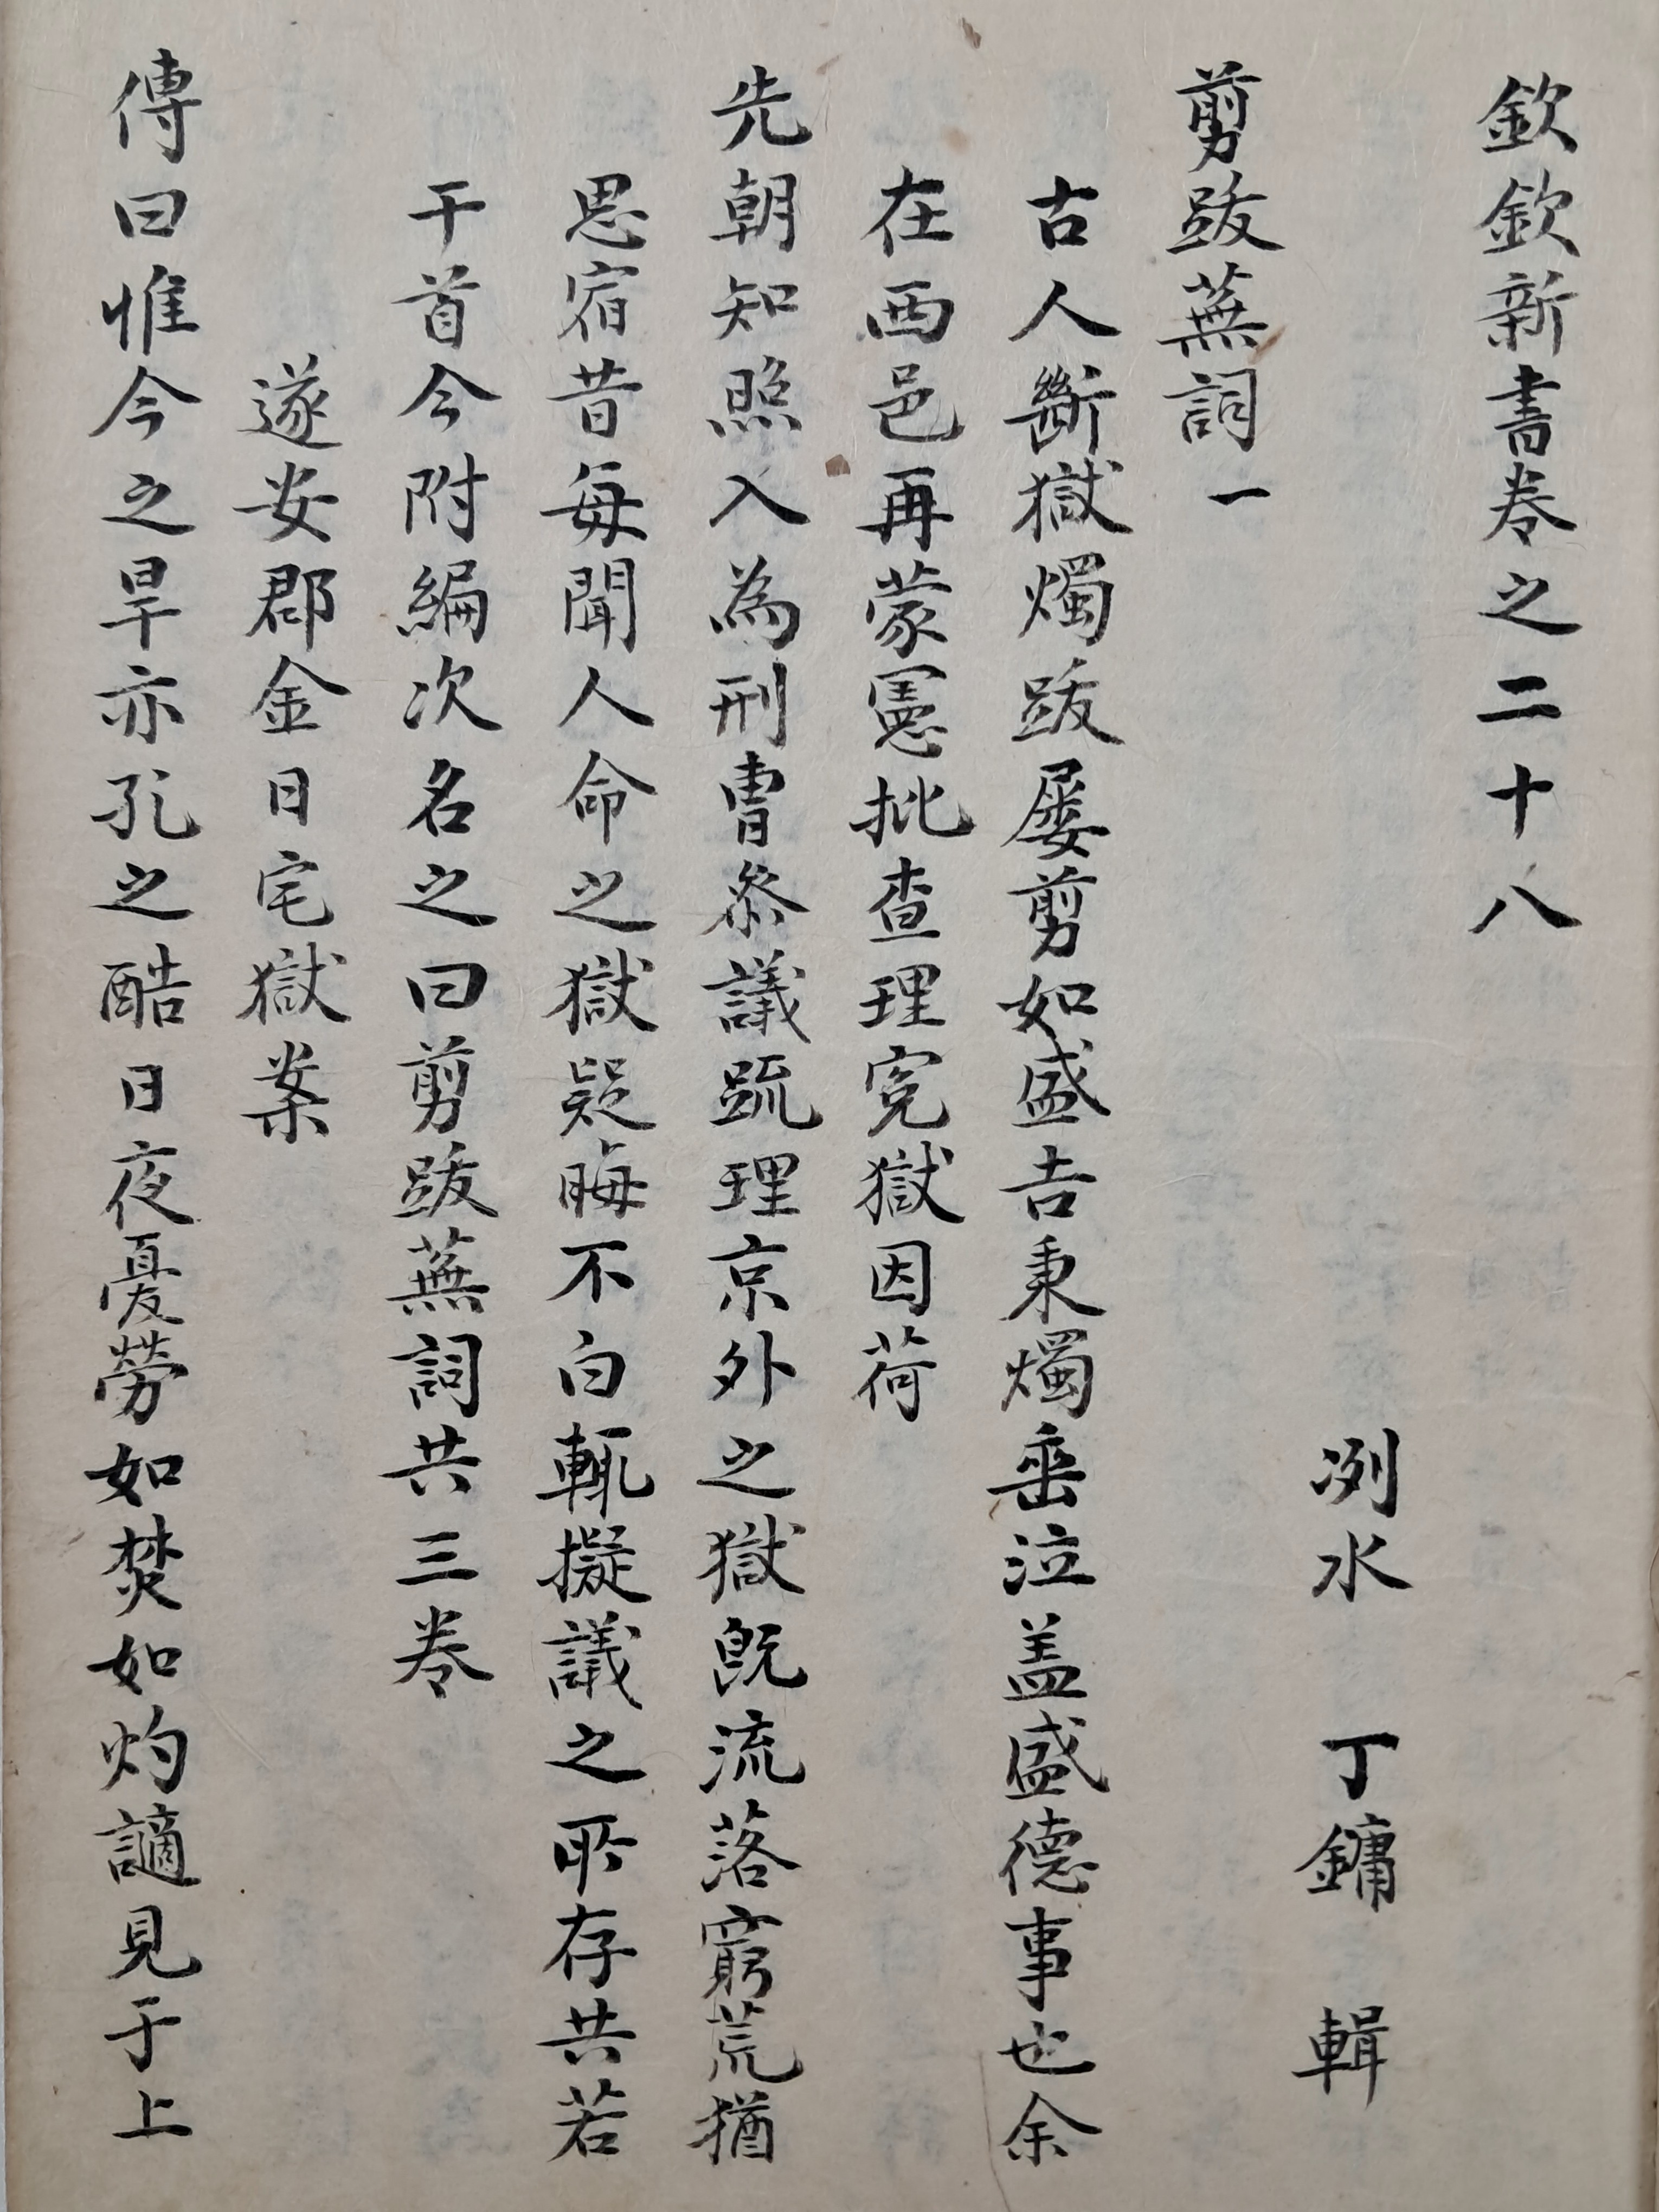 欽欽新書卷之二十八
洌水 丁鏞 輯
剪跋蕪詞一
古人斷獄燭跋屢剪如盛吉秉燭垂泣盖盛德事也余
在西邑再蒙憲批查理寃獄因荷
先朝知照入為刑曺叅議䟽理京外之獄旣流落窮荒猶
思宿昔每聞人命之獄疑晦不白輒擬議之所存共若
干首今附編次名之曰剪跋蕪詞共三卷
遂安郡金日宅獄案
傳曰惟今之旱亦孔之酷日夜憂勞如焚如灼謫見于上